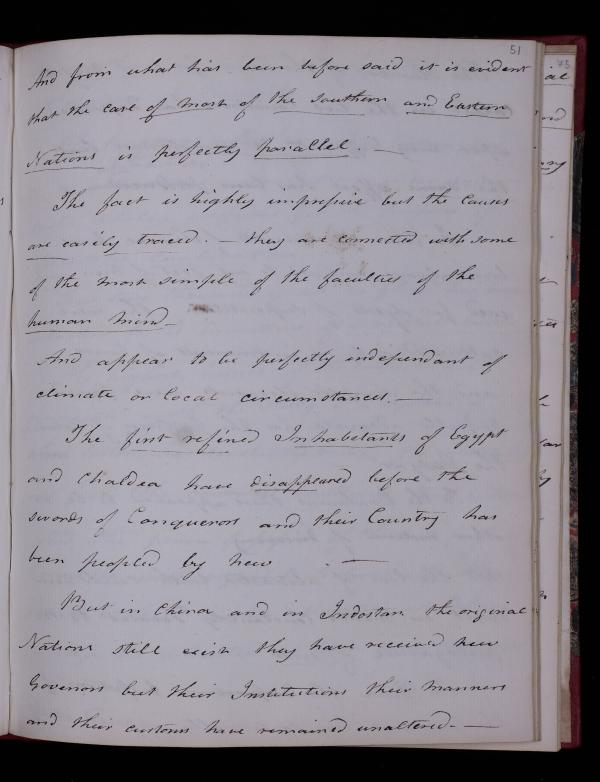 51
And from what has been before said it is evident
that the case of most of the southern and Eastern
Nations is perfectly parallel. —
The fact is highly impressive but the causes
are easily traced. — they are connected with some
of the most simple of the faculties of the
human mind —
And appear to be perfectly independant of
climate or local circumstances. —
The first refined Inhabitants of Egypt
and Chaldea have disappeared before the
swords of Conquerors and their Country has
been peopled by new . —
But in China and in Indostan the original
Nations still exist they have received new
Governors but their Institutions their manners
and their customs have remained unaltered. —
73